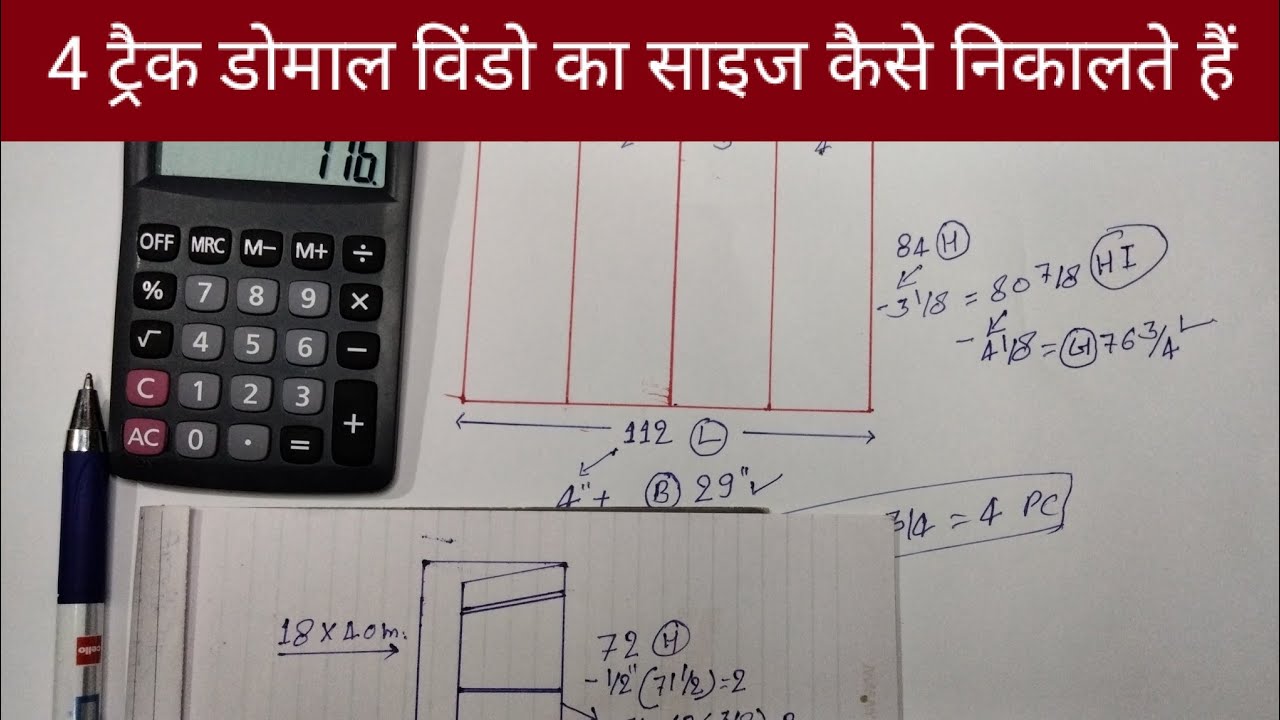 4 ट्रैक डोमाल विंडो का साइज कैसे निकालते हैं
116.
OFF MRC M− M+ ÷
% 7 8 9 ×
√ 4 5 6 −
C 1 2 3 +
AC 0 · =
2 3 4
84 H
-3 1/8 = 80 7/8 HI
-4 1/8 = H 76 3/4 ✓
112 L
4"+ B 29" ✓
3/4 = 4 PC
18 X 40m.
72 H
-1/2" (71 1/2) = 2
cello